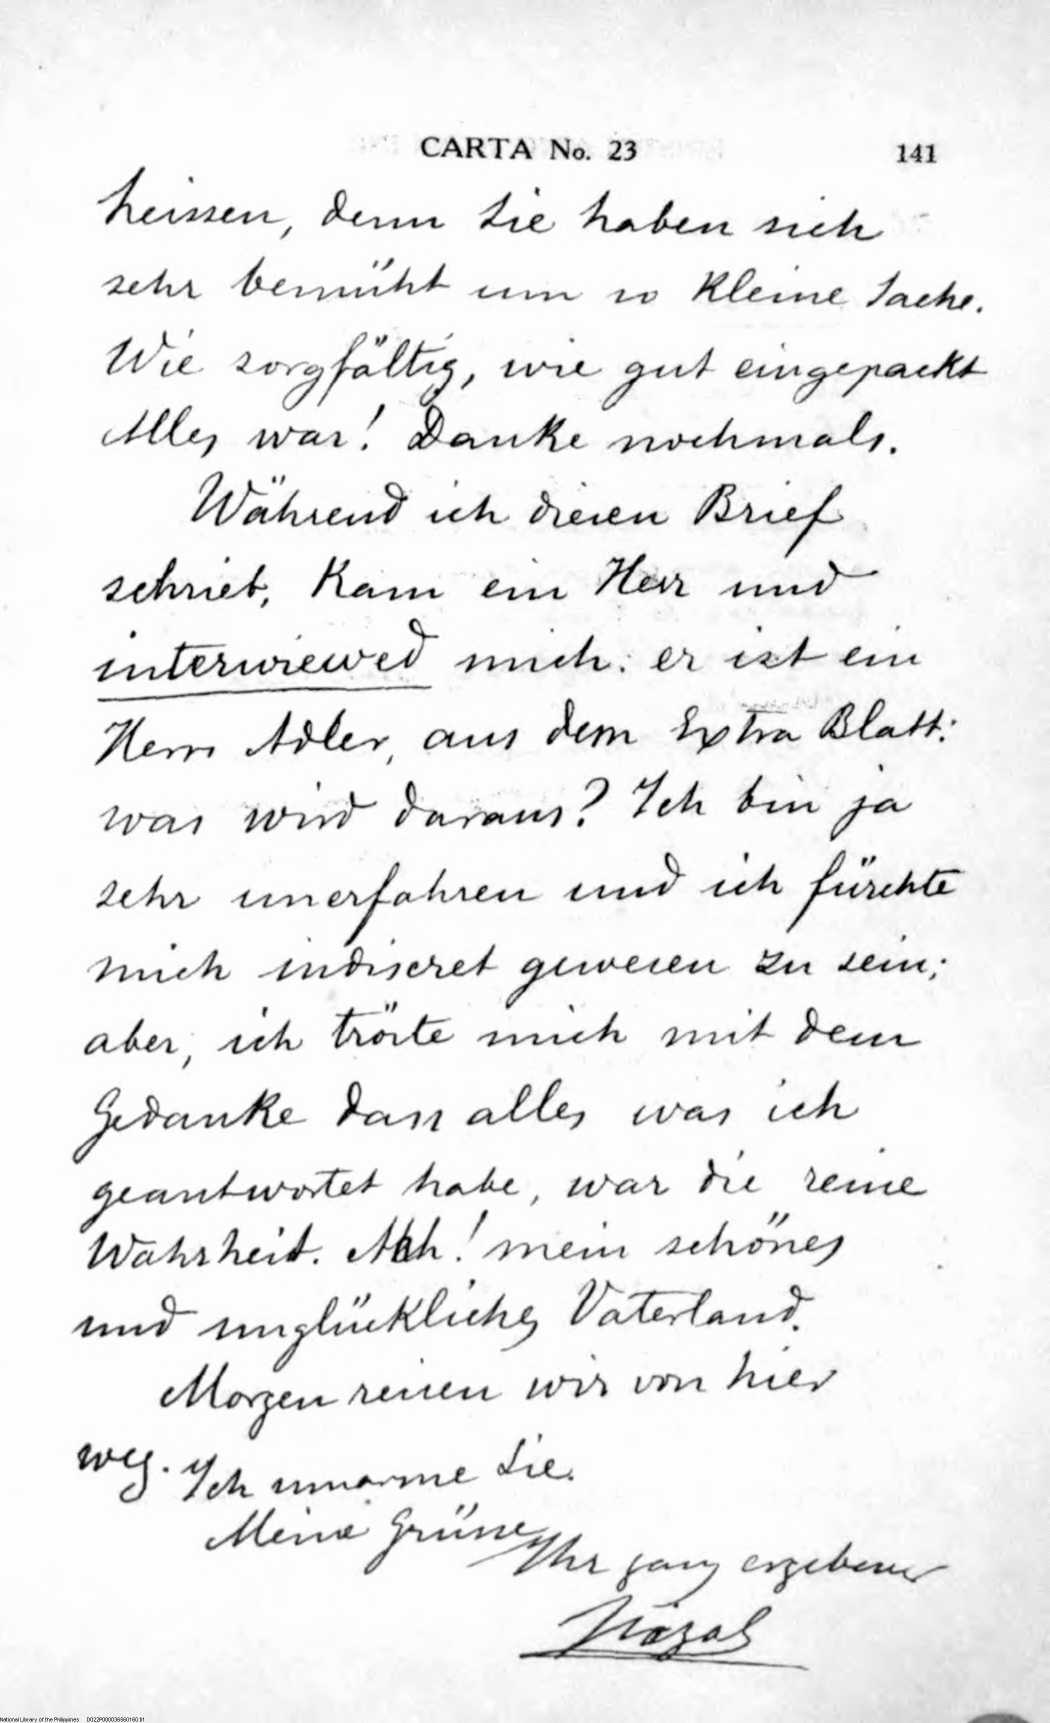 CARTA No. 23 141
heissen, denn Sie haben sich
sehr bemüht um so kleine Sache.
Wie sorgfältig, wie gut eingepackt
Alles war! Danke nochmals.
Während ich diesen Brief
schrieb, kam ein Herr und
interwiewed mich: er ist ein
Herrn Adler, aus dem Extra Blatt:
was wird daraus? Ich bin ja
sehr unerfahren und ich fürchte
mich indiscret gewesen zu sein;
aber, ich tröste mich mit dem
Gedanke dass alles was ich
geantwortet habe, war die reine
Wahrheit. Ach! mein schönes
und unglückliches Vaterland.
Morgen reisen wir von hier
weg. Ich umarme Sie.
Meine Grüsse
Ihr ganz ergebener
Rizal
National Library of the Philippines